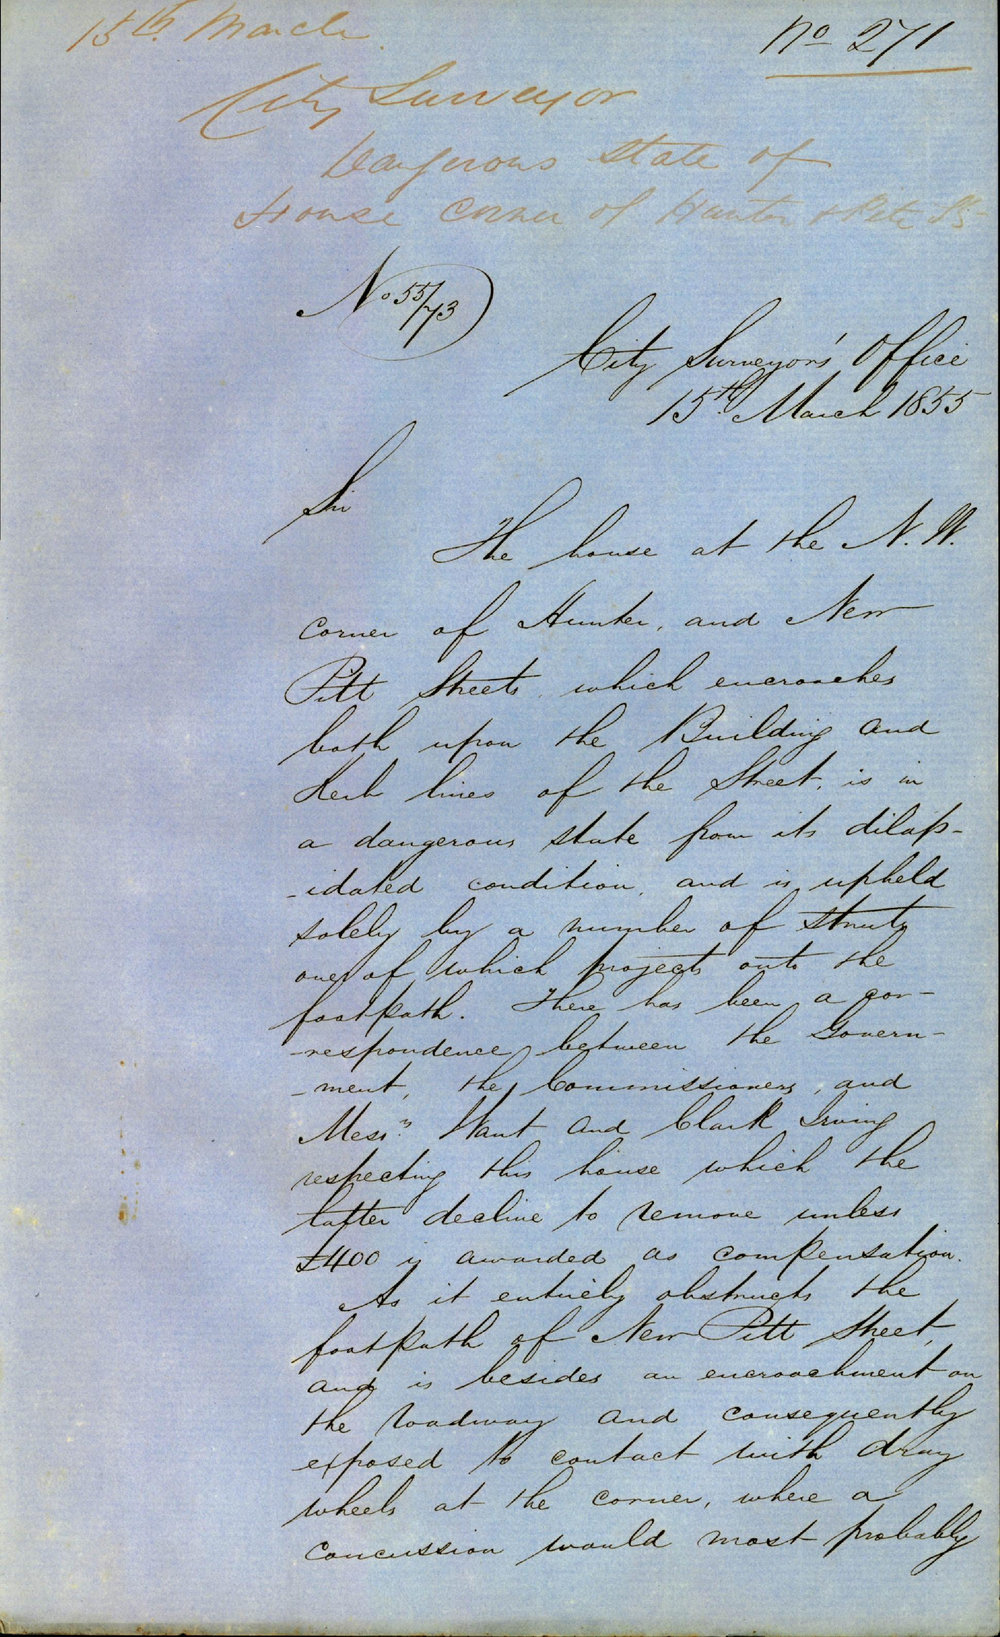 15th March.
No 271
City Surveyor
Dangerous State of
House Corner of Hunter & Pitt Sts
No 55/73
City Surveyor's Office
15th March 1855
Sir
The house at the N. W.
corner of Hunter, and New
Pitt Streets, which encroaches
both upon the Building and
Kerb lines of the Street, is in
a dangerous state from its dilap-
-idated condition, and is upheld
solely by a number of struts
one of which projects onto the
footpath. There has been a cor-
-respondence between the Govern-
-ment, the Commissioners, and
Messrs Want and Clark Irving
respecting this house which the
latter decline to remove unless
£400 is awarded as compensation.
As it entirely obstructs the
footpath of New Pitt Street,
and is besides an encroachment on
the roadway and consequently
exposed to contact with dray
wheels at the corner, where a
concussion would most probably